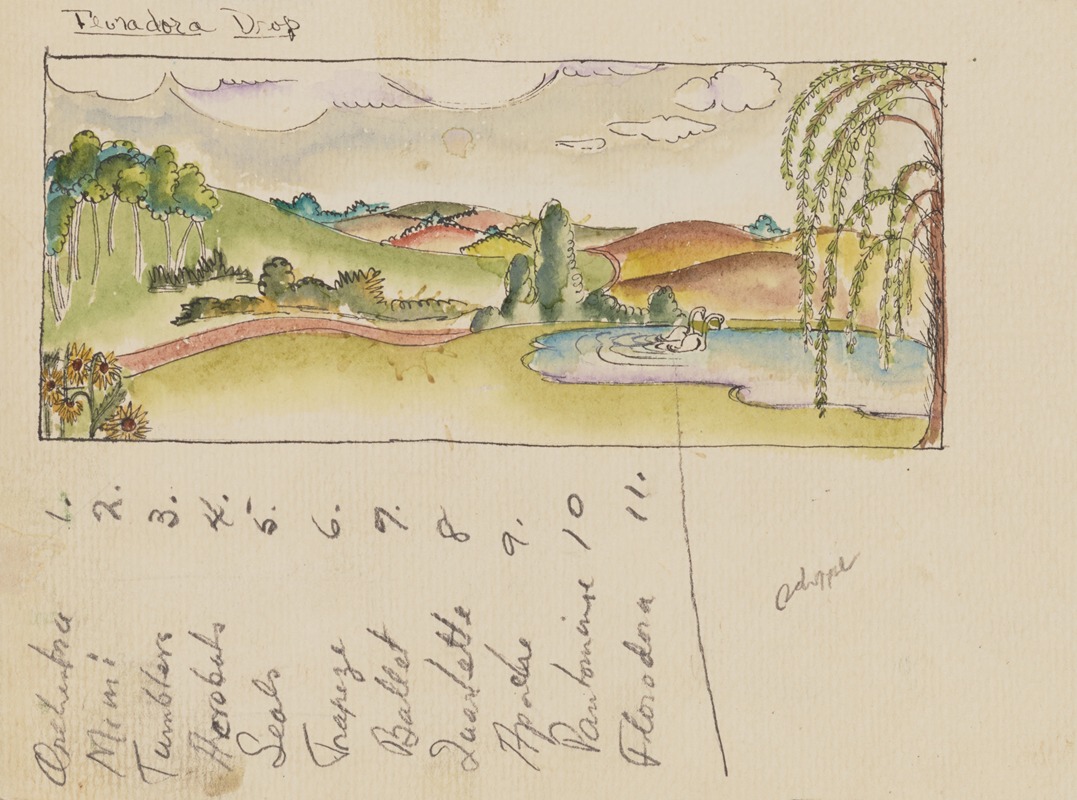 Fluradora Drop
Orchestra 1.
Mimi 2.
Tumblers 3.
Acrobats 4.
Seals 5.
Trapeze 6.
Ballet 7.
Quartette 8
Apache 9.
Pantomime 10
Florodora 11.